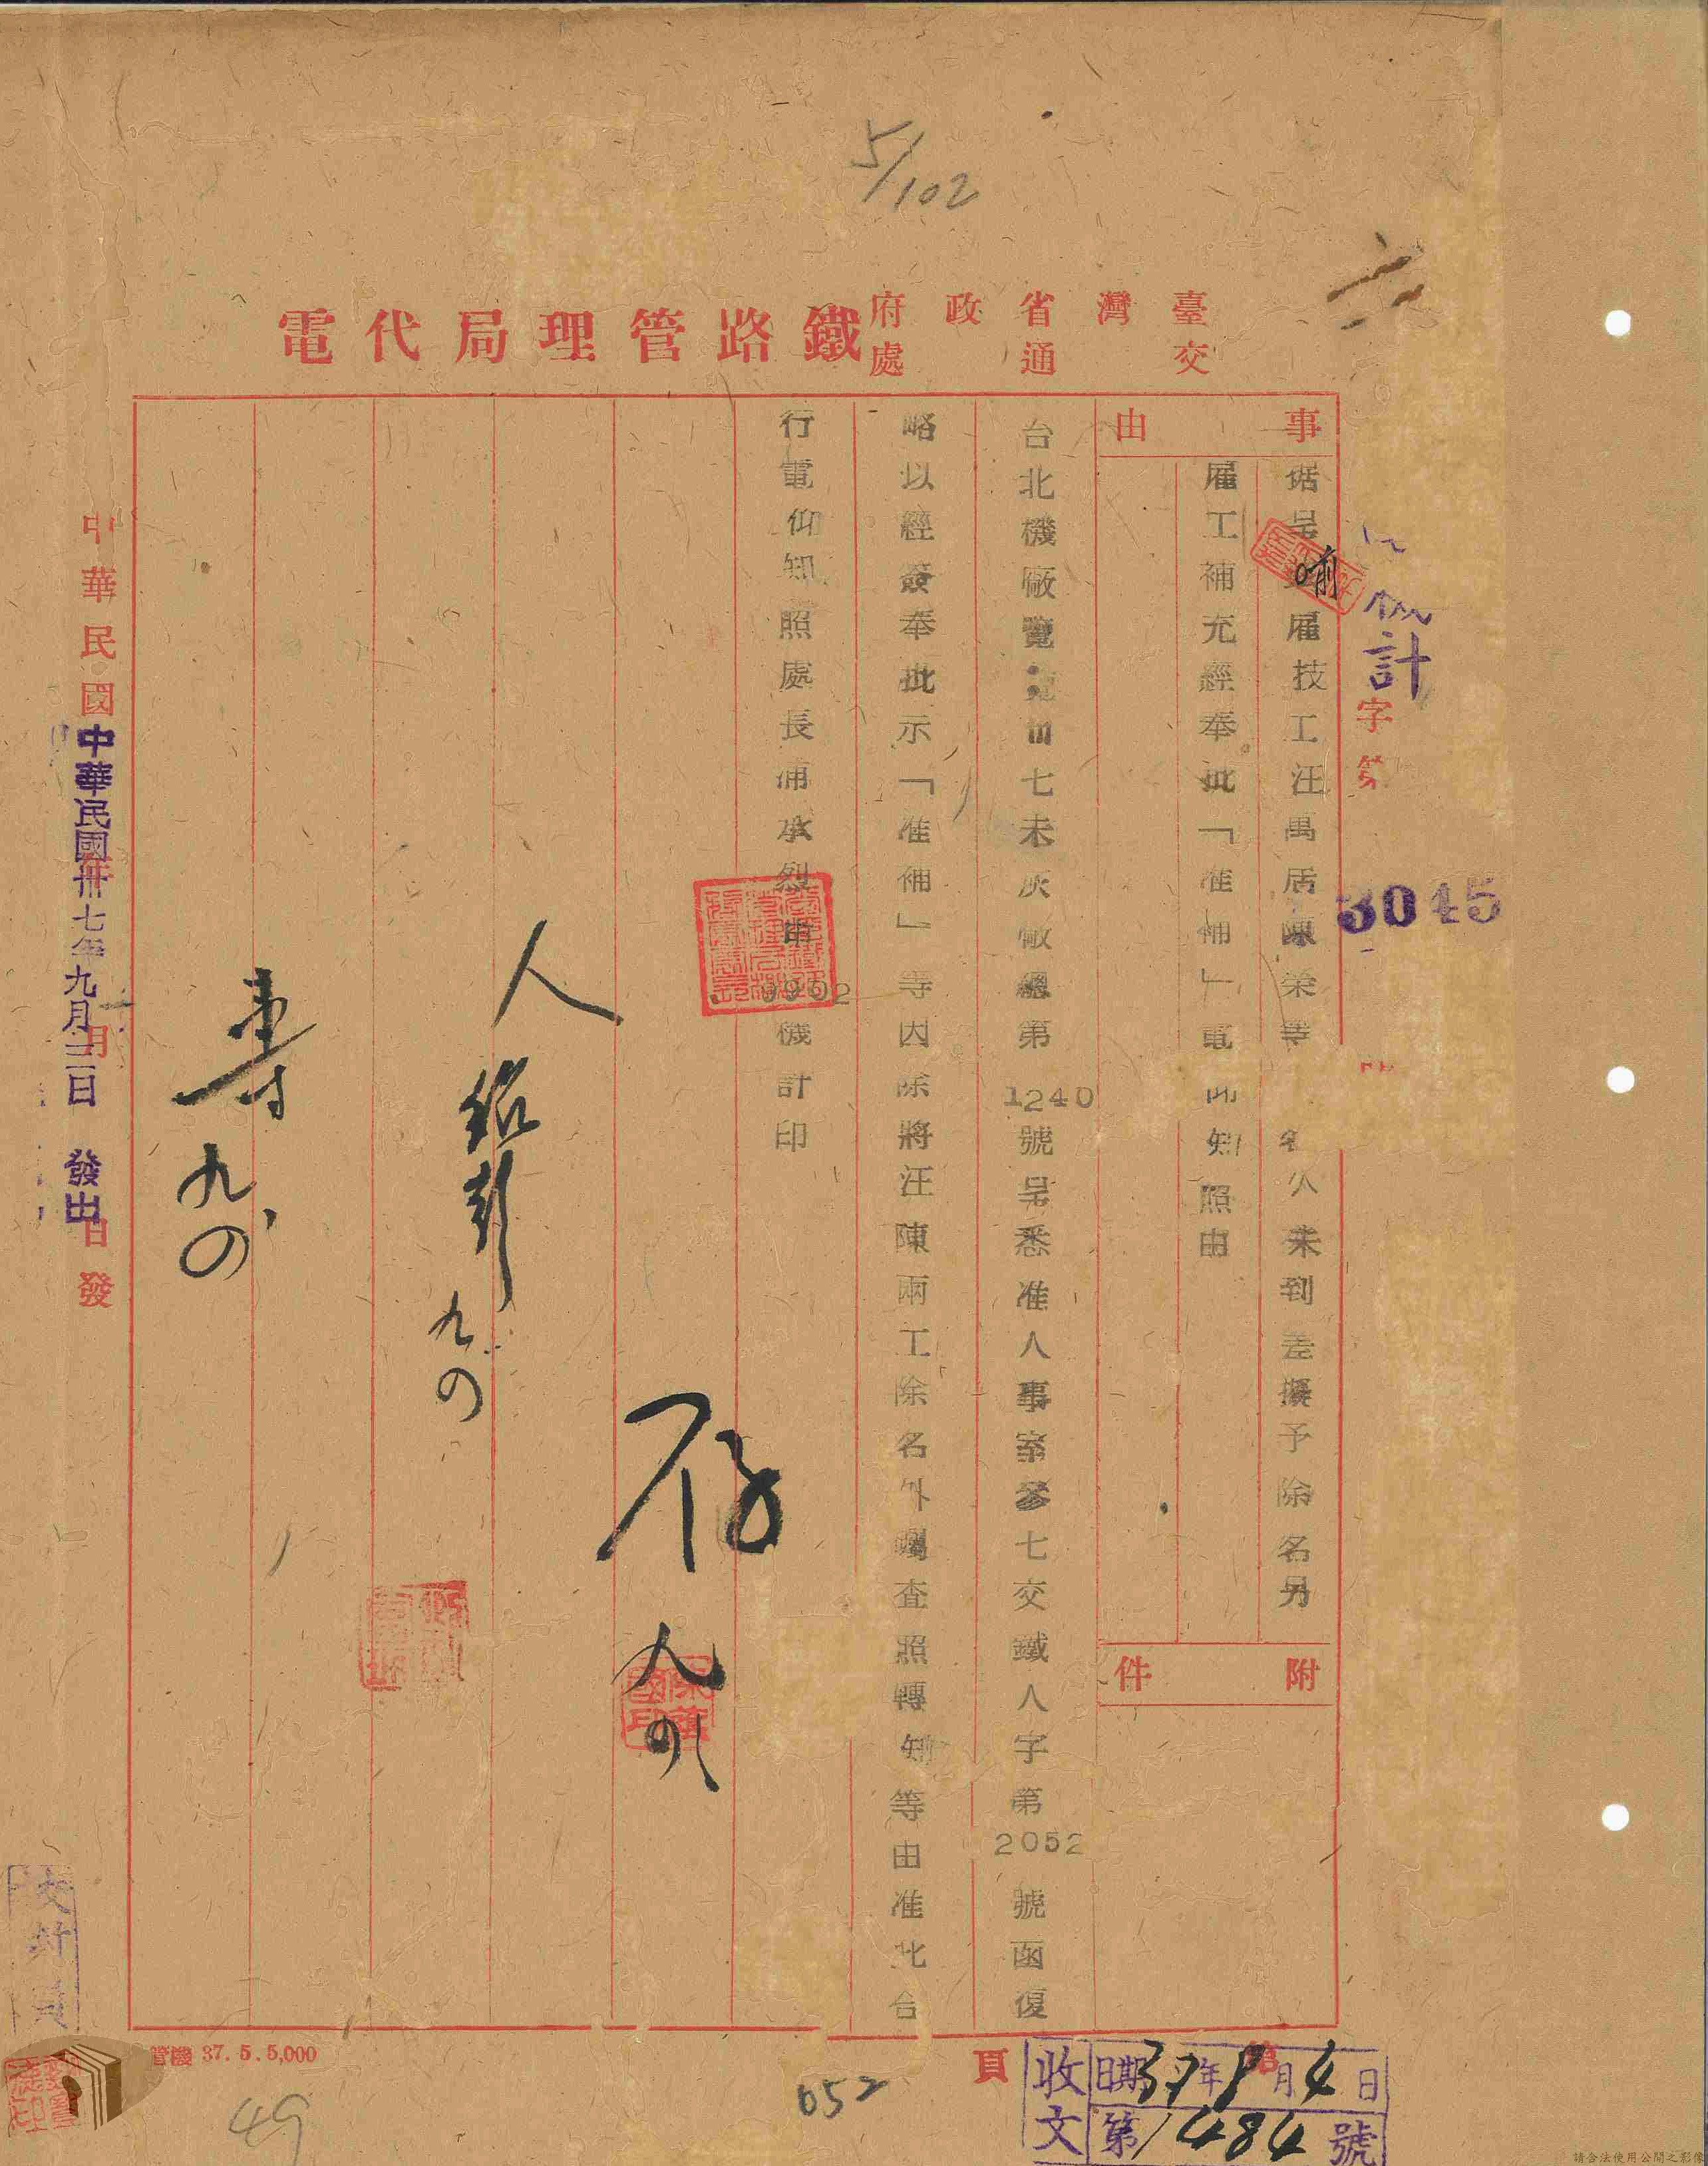 5/102
臺灣省政府
交通處
鐵路管理局代電
機計
字第
3045
事由
據呈
雇技工汪萬居陳榮等
名久未到差擬予除名另
雇工補充經奉批「准補」電
知照由
附件
台北機廠覽
七未灰廠總第1240號呈悉准人事室參七交鐵人字第2052號函復
略以經簽奉批示「准補」等因除將汪陳兩工除名外囑查照轉知等由准此合
行電仰知照處長浦承烈申
9902
機計印
存
九
人
九
九
中華民國
月
日發
中華民國卅七年九月二日發出
校對員
管機 37. 5. 5,000
第
頁
收文
日期37年9月4日
第1484號
052
49
請合法使用公開之影像